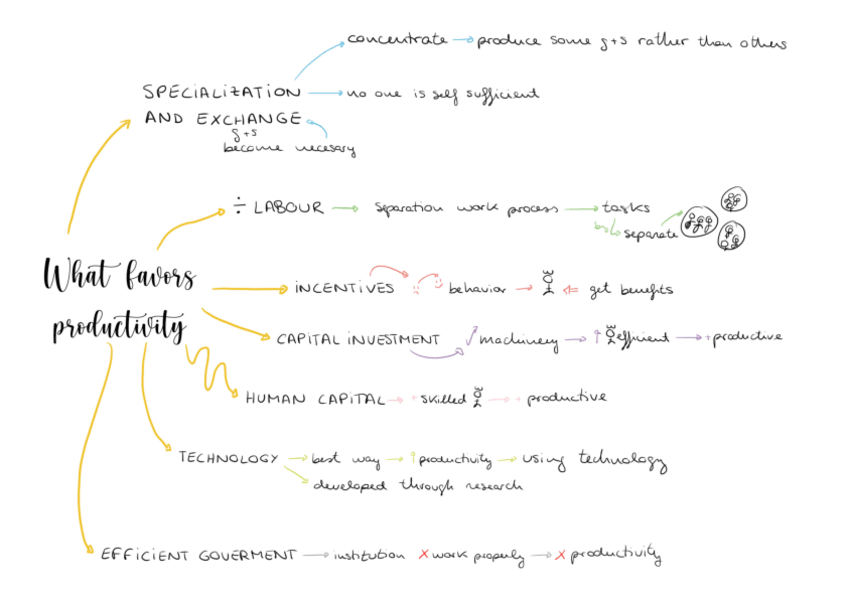 concentrate → produce some g+s rather than others
SPECIALIZATION → no one is self sufficient
AND EXCHANGE
g+s
become necesary
÷ LABOUR → separation work process → tasks
separate
What favors
productivity
INCENTIVES behavior → ⇐ get benefits
CAPITAL INVESTMENT machinery → ↑ efficient → + productive
HUMAN CAPITAL → + skilled → + productive
TECHNOLOGY → best way → ↑ productivity → using technology
developed through research
EFFICIENT GOVERMENT → institution X work properly → X productivity